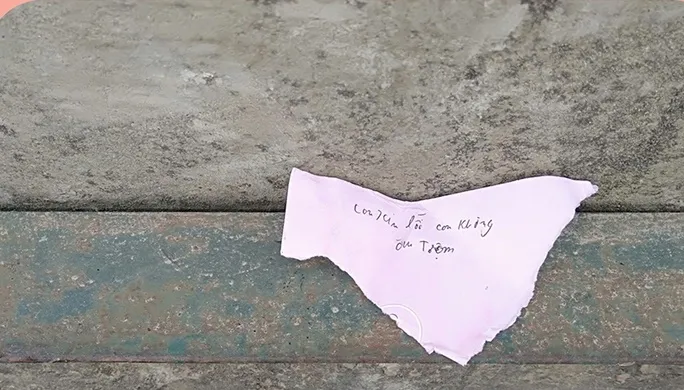 Con xin lỗi con không
ăn Trộm